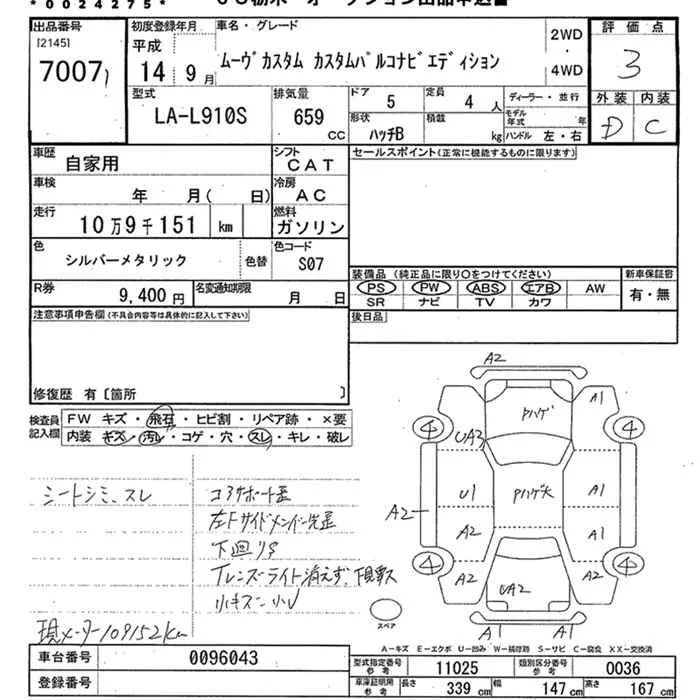 *0024275*
出品番号 [2145]
7007
初度登録年月 平成 14 9月
車名・グレード
ムーヴカスタム カスタムパルコナビエディション
2WD・4WD
評価点 3
外装 内装
D C
型式 LA-L910S
排気量 659 CC
ドア 5
定員 4 人
ディーラー・並行
形状 ハッチB
積載 kg
モデル年式 年
ハンドル 左・右
車歴 自家用
シフト CAT
セールスポイント(正常に機能するものに限ります)
車検 年 月( 日)
冷房 AC
走行 10万9千151 km
燃料 ガソリン
色 シルバーメタリック
色替
色コード S07
R券 9,400円
名変通知期限 月 日
装備品 (純正品に限り○をつけてください)
新車保証書
PS PW ABS エアB AW
有・無
SR ナビ TV カワ
注意事項申告欄(不具合内容等は具体的に記入して下さい)
後日品
修復歴 有〔箇所 〕
検査員記入欄
FW キズ・飛石・ヒビ割・リペア跡・×要
内装 キズ・汚レ・コゲ・穴・スレ・キレ・破レ
シートシミ、スレ
コアサポート歪
左Fサイドメンバー先歪
下廻りS
小キズ 小U
現メーター109152km
A2
Pハゲ
A1
4
4
UA3
U1
Pハゲ大
A1
A2
A2
A1
4
4
A2
UA2
A2
A1 A1
スペア
A-キズ E-エクボ U-凹み W-補修跡 S-サビ C-腐食 XX-交換済
車台番号 0096043
型式指定番号 参考 11025
類別区分番号 参考 0036
登録番号
車庫証明 参考 長さ 339 cm 幅 147 cm 高さ 167 cm